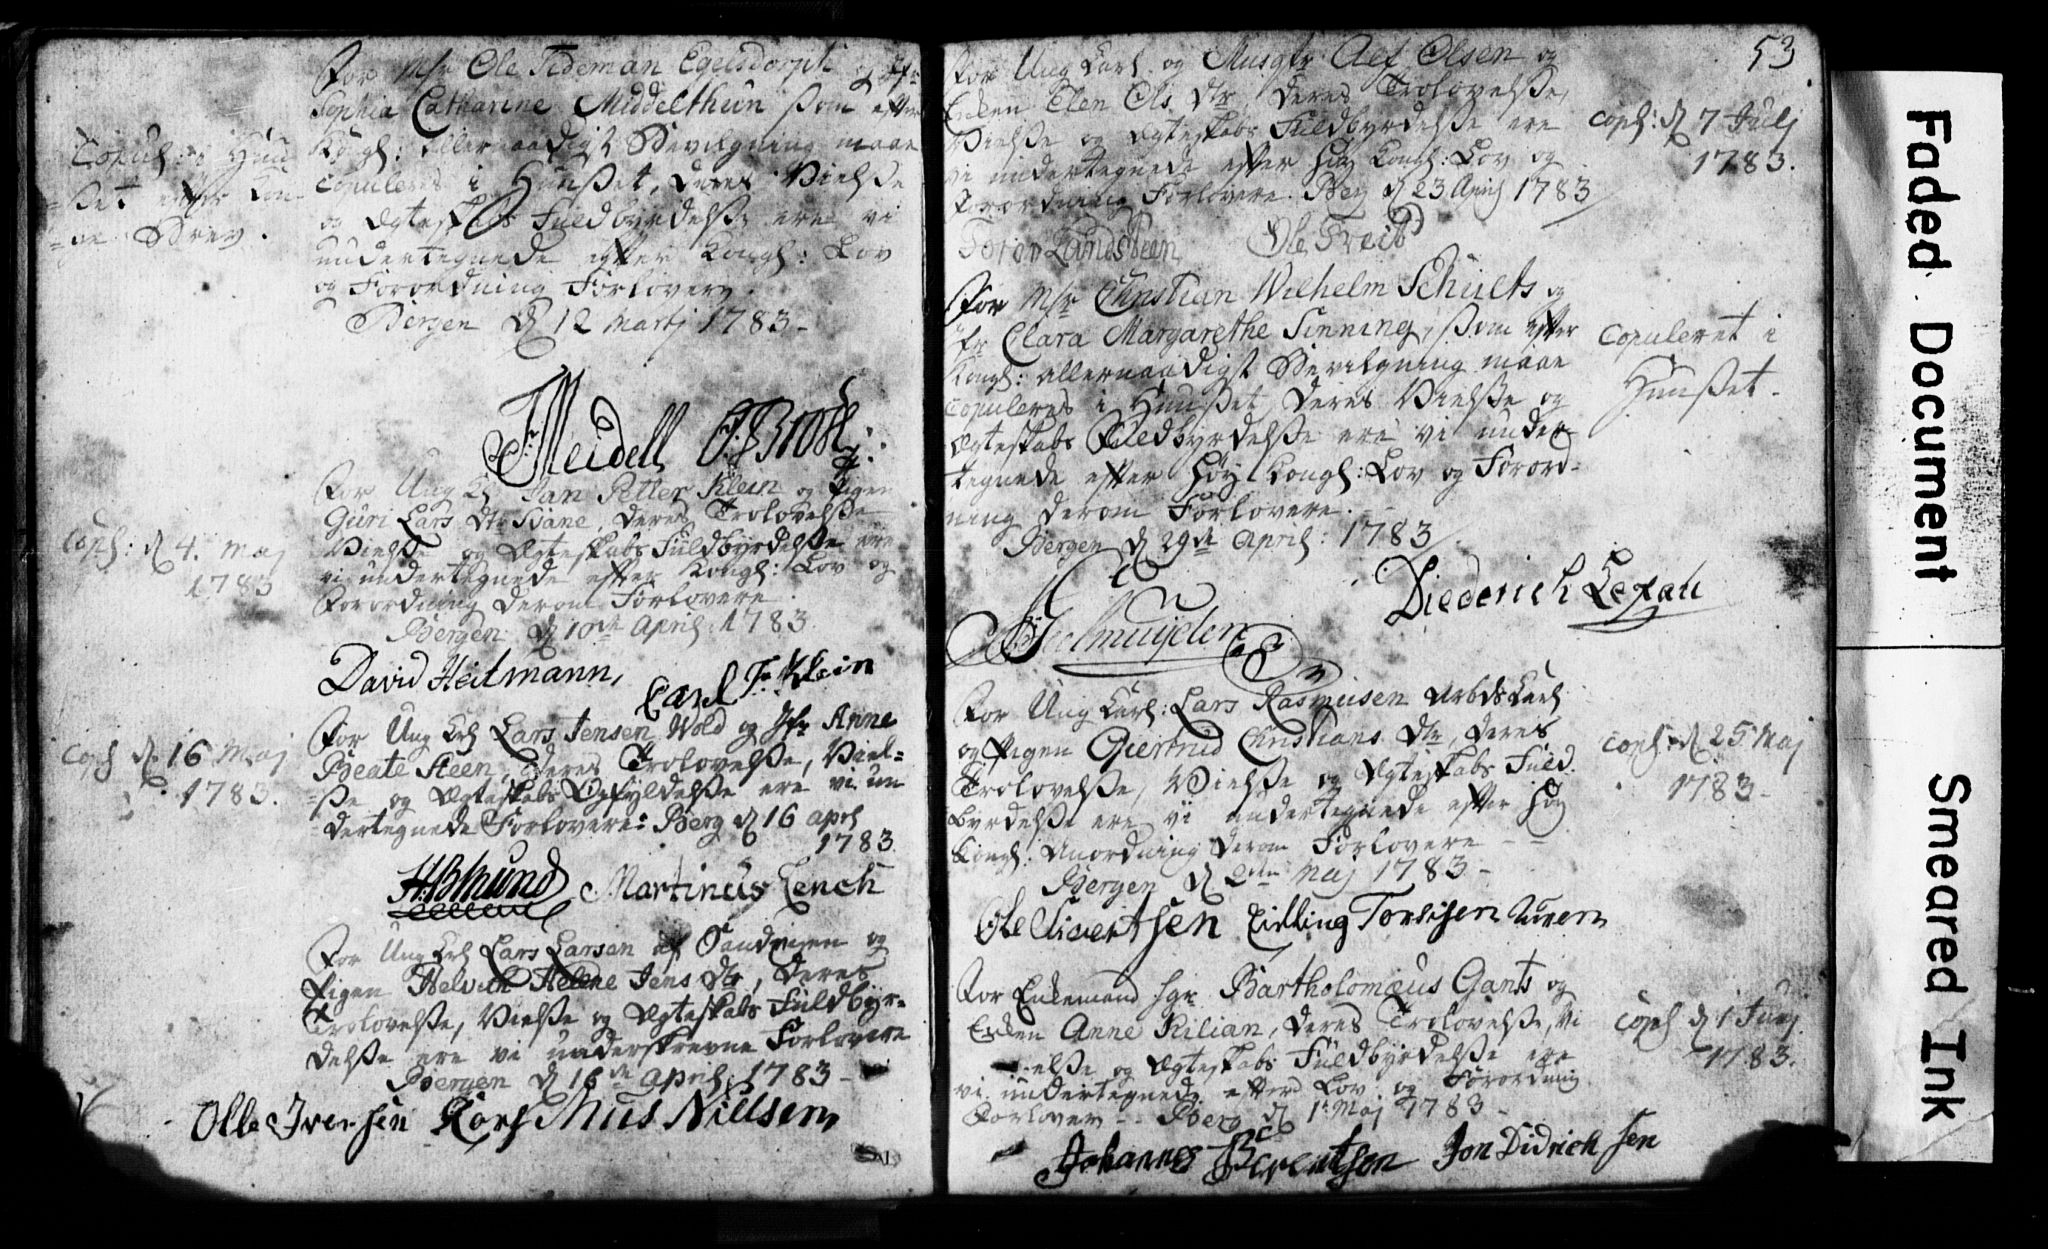 For Mfr Ole Tideman Egelsdorph og Jfr
Sophia Catharine Middelthun som efter
Kongl: allernaadigst Bevilgning maae
copuleres i Huuset, deres Vielse
og Ægteskabs Fuldbyrdelse ere vi
undertegnede efter Kongl: Lov
og Forordning Forlovere.
Bergen d 12 Martj 1783-
Copul: i Huu
set efter Kon
ge Brev.
Meidell
For Ung K Jan Petter Klein og Pigen
Guri Lars Dtr Svane, deres Trolovelse
Vielse og Ægteskabs Fuldbyrdelse ere
vi undertegnede efter Kongl: Lov og
Forordning derom Forlovere
Bergen d 10de April 1783.
Copl: d 4. Maj
1783
David Heitmann, Carl Fr Klein
For Ung Krl Lars Jensen Wold og Jfr Anne
Beate Steen, deres Trolovelse, Viel=
=se og Ægteskabs Opfyldelse ere vi un
dertegnede Forlovere: Berg d 16 april
1783
Copl d. 16 Maj
1783.
Martinus Lench
For Ung Krl Lars Larsen af Sandvigen og
Pigen Helvich Helene Jens Dtr, deres
Trolovelse, Vielse og Ægteskabs Fuldbyr=
delse ere vi underskrevne Forlovere
Bergen d 16de April 1783-
Olle Iversen Rasmus Nillsen
53
For Ung Karl og Musqtr Aef Olsen og
Enken Elen Ols Dtr, deres Trolovelse,
Vielse og Ægteskabs Fuldbyrdelse ere
vi undertegnede efter høy Kongl: Lov og
Forordning Forlovere. Berg d 23 April 1783
Copl: d 7 Julj
1783.
Landsteen Ole
For Mfr Christian Wilhelm Schults og
Jfr Clara Margarethe Sinning, som efter
Kongl: allernaadigst Bevilgning maae
copuleres i Huuset, deres Vielse og
Ægteskabs Fuldbyrdelse ere vi under
tegnede efter Høy Kongl: Lov og Forord=
ning derom Forlovere.
Bergen d 29de April: 1783
Copuleret i
Huuset.
Geelmuyden Diederich
For Ung Karl: Lars Rasmusen Arbds Karl
og Pigen Giertrud Christians Dtr, deres
Trolovelse, Vielse og Ægteskabs Fuld
byrdelse ere vi undertegnede efter Høy
Kongl: Anordning derom Forlovere
Bergen d 2den Maj 1783-
Copl: d. 25 Maj
1783-
Ole Sivertsen
For Enkemand Sgr Bartholomæus Gants og
Enken Anne Kilian, deres Trolovelse, Vi
else og Ægteskabs Fuldbyrdelse ere
vi undertegnede efter Lov og Forordning
Forlover -- Berg d 1t Maj 1783-
Copl d 1 Junj
1783.
Johannes Berentsen Jon Didrichsen
Faded Document
Smeared Ink